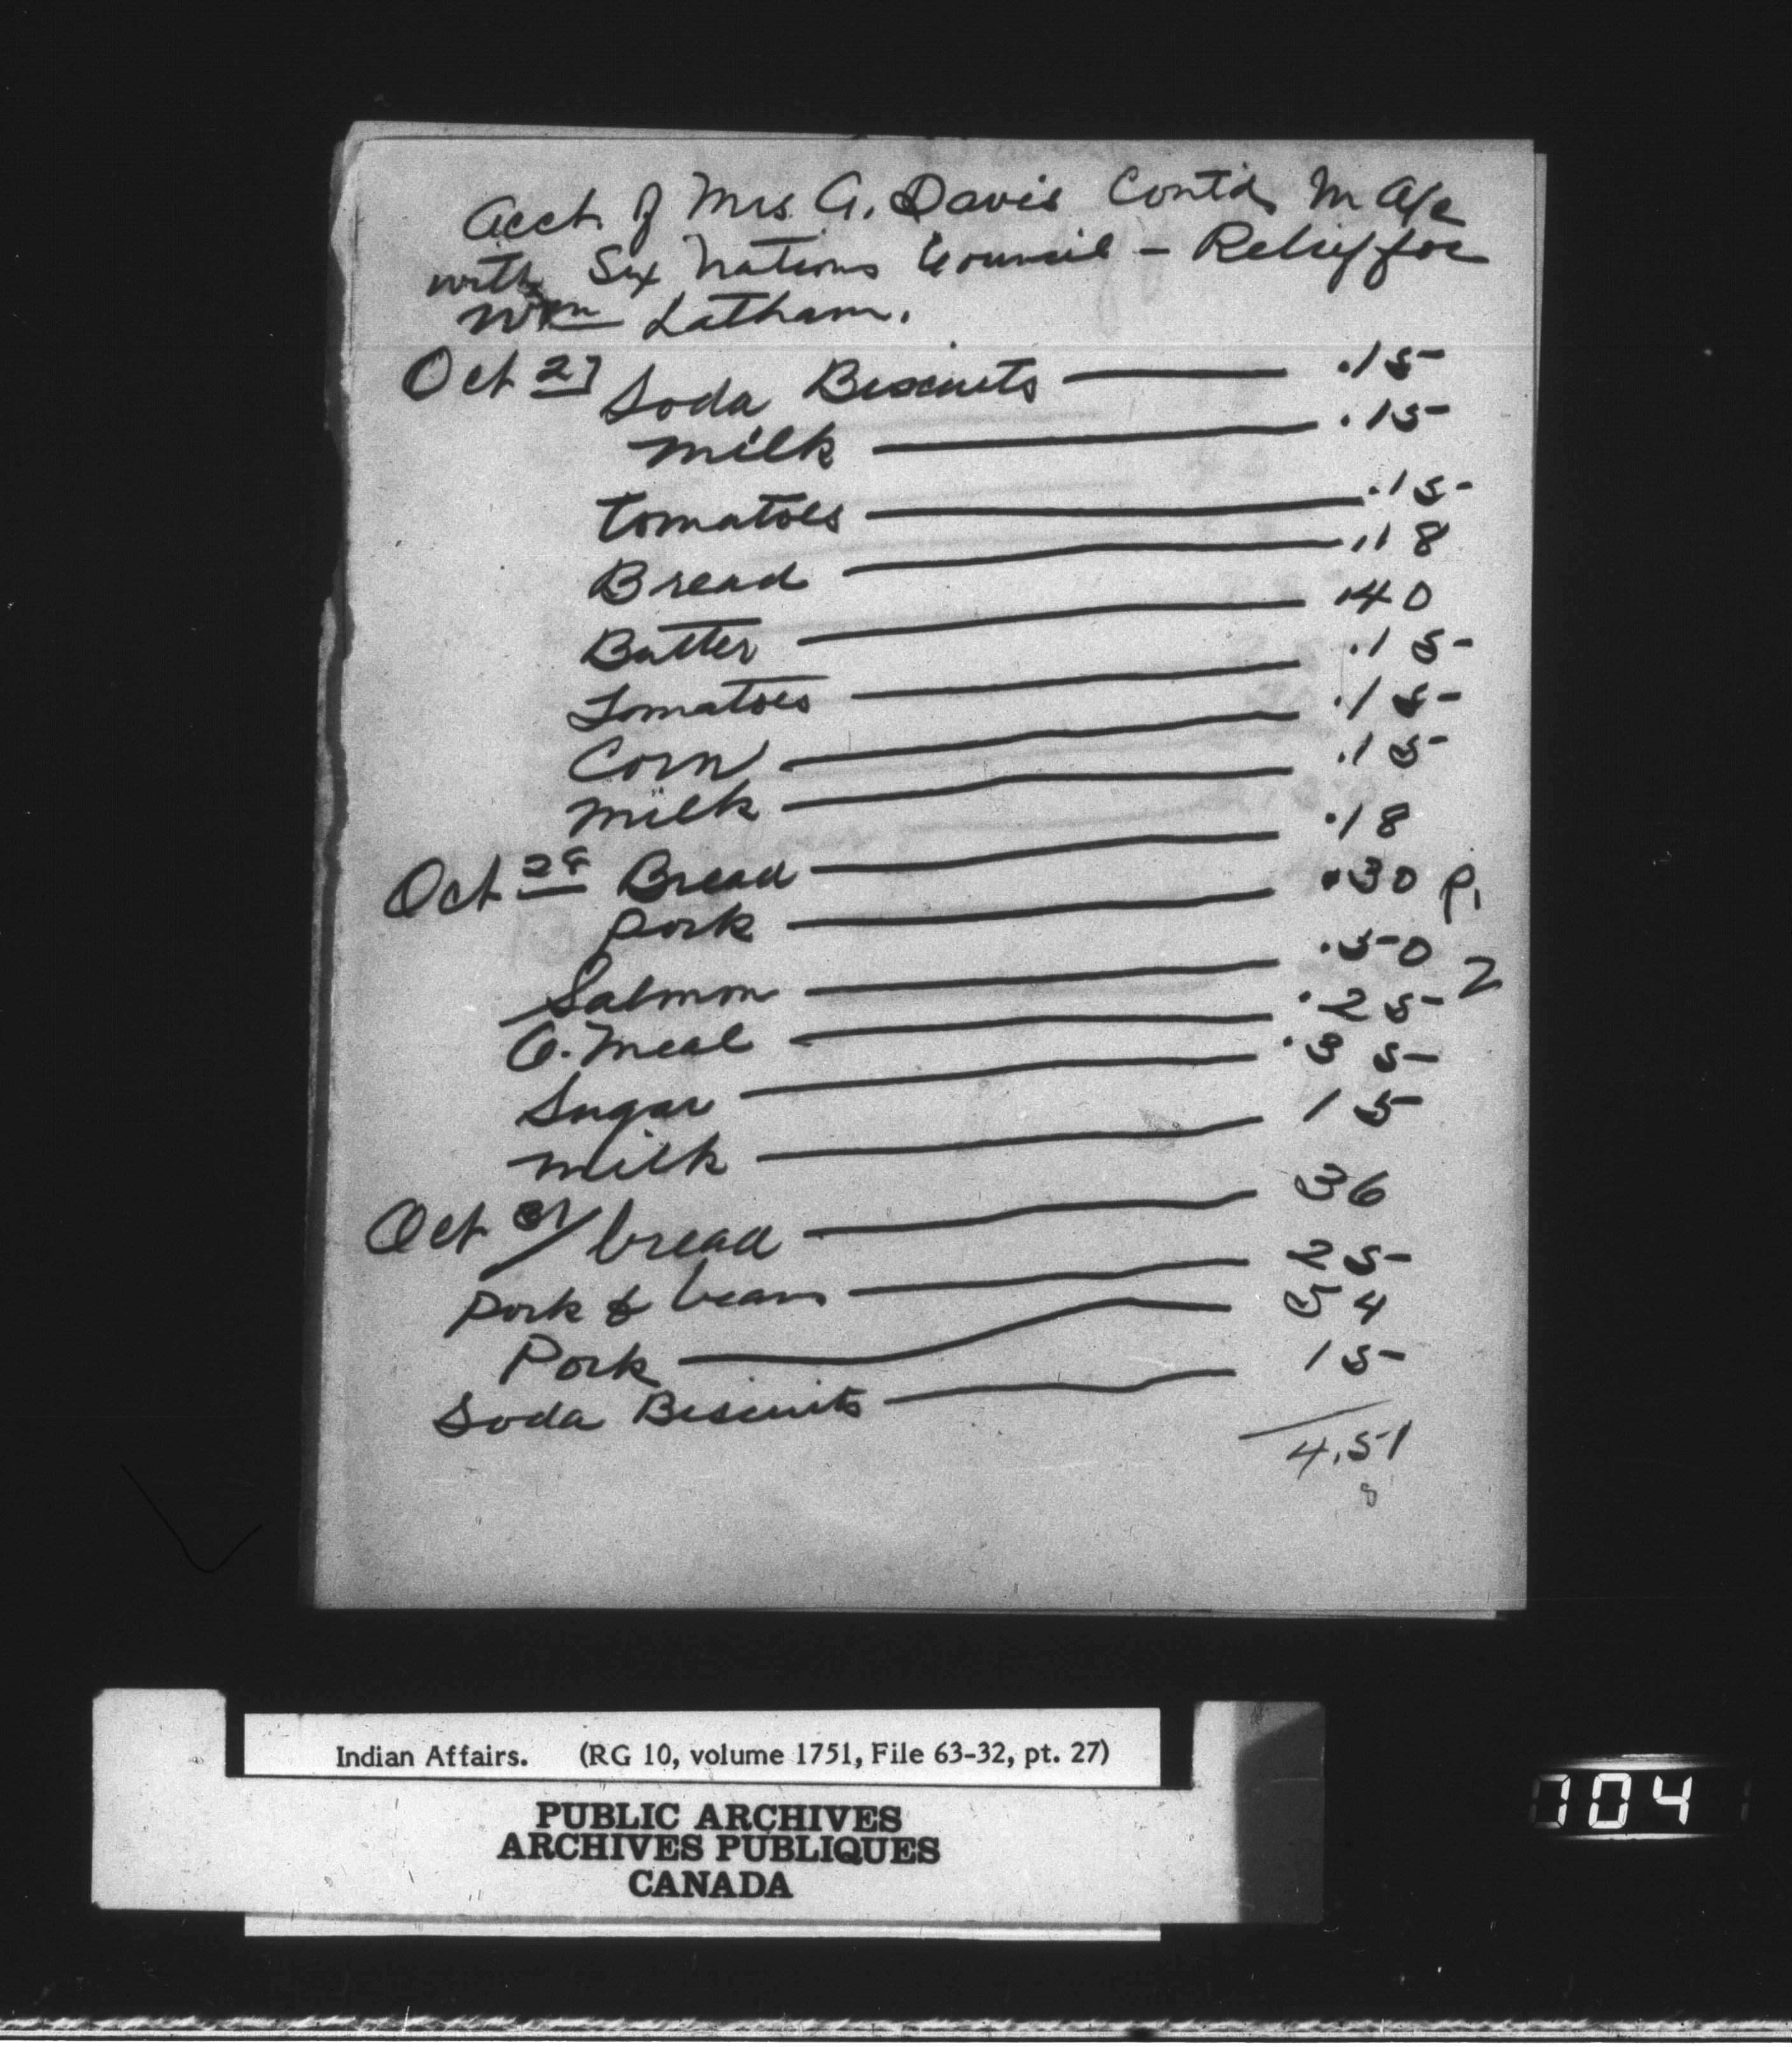 Acct. of Mrs. A. Davis Cont'd In A/c
with Six Nations Council - Relief for
Wm Latham.
Oct 27 Soda Biscuits .15
Milk .15
Tomatoes .15
Bread .18
Butter .40
Tomatoes .15
Corn .15
Milk .15
Oct 29 Bread .18
Pork .30 P.
Salmon .50 2
O. Meal .25
Sugar .35
Milk 15
Oct 31/ bread 36
Pork & beans 25
Pork 54
Soda Biscuits 15
4.51
8
Indian Affairs. (RG 10, volume 1751, File 63-32, pt. 27)
PUBLIC ARCHIVES
ARCHIVES PUBLIQUES
CANADA
704